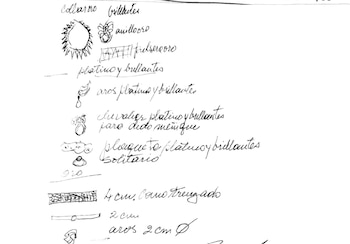 collar oro brillantes
anillo oro
pulsera oro
platino y brillantes
aros platino y brillante
chevalier platino y brillantes
para dedo meñique
plaqueta platino y brillantes
solitario
oro
4 cm. como trenzado
2 cm
aros 2 cm Ø